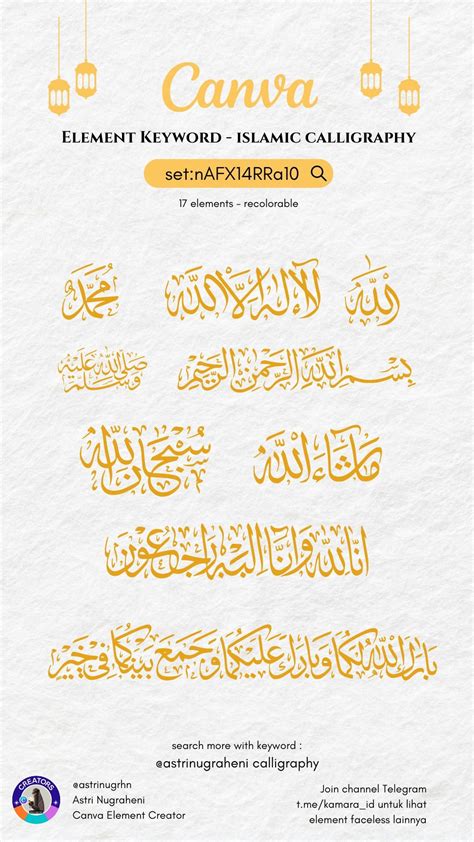 Canva
ELEMENT KEYWORD - ISLAMIC CALLIGRAPHY
set:nAFX14RRa10
17 elements - recolorable
الله لا إله إلا الله محمد
بسم الله الرحمن الرحيم صلى الله عليه وسلم
ما شاء الله سبحان الله
انا لله وانا اليه راجعون
بارك الله لكما وبارك عليكما وجمع بينكما في خير
search more with keyword :
@astrinugraheni calligraphy
CREATORS
@astrinugrhn
Astri Nugraheni
Canva Element Creator
Join channel Telegram
t.me/kamara_id untuk lihat
element faceless lainnya